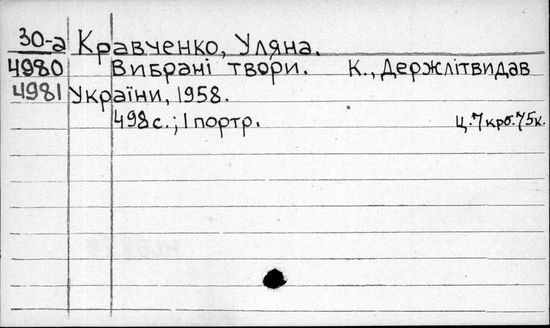 30-а Кравченко, Уляна.
4980 Вибрані твори. К., Держлітвидав
4981 України, 1958.
498 с.; 1 портр. Ц. 7 крб. 75 к.